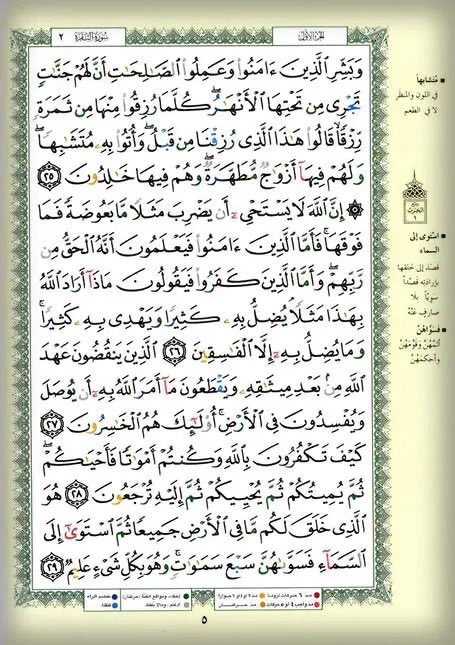 الجزء الأول
سورة البقرة ٢
وَبَشِّرِ ٱلَّذِينَ ءَامَنُوا۟ وَعَمِلُوا۟ ٱلصَّـٰلِحَـٰتِ أَنَّ لَهُمْ جَنَّـٰتٍ
تَجْرِى مِن تَحْتِهَا ٱلْأَنْهَـٰرُ ۖ كُلَّمَا رُزِقُوا۟ مِنْهَا مِن ثَمَرَةٍ
رِّزْقًا ۙ قَالُوا۟ هَـٰذَا ٱلَّذِى رُزِقْنَا مِن قَبْلُ ۖ وَأُتُوا۟ بِهِۦ مُتَشَـٰبِهًا ۖ
وَلَهُمْ فِيهَآ أَزْوَٰجٌ مُّطَهَّرَةٌ ۖ وَهُمْ فِيهَا خَـٰلِدُونَ ٢٥
۞ إِنَّ ٱللَّهَ لَا يَسْتَحْىِۦٓ أَن يَضْرِبَ مَثَلًا مَّا بَعُوضَةً فَمَا
فَوْقَهَا ۚ فَأَمَّا ٱلَّذِينَ ءَامَنُوا۟ فَيَعْلَمُونَ أَنَّهُ ٱلْحَقُّ مِن
رَّبِّهِمْ ۖ وَأَمَّا ٱلَّذِينَ كَفَرُوا۟ فَيَقُولُونَ مَاذَآ أَرَادَ ٱللَّهُ
بِهَـٰذَا مَثَلًا ۘ يُضِلُّ بِهِۦ كَثِيرًا وَيَهْدِى بِهِۦ كَثِيرًا ۚ
وَمَا يُضِلُّ بِهِۦٓ إِلَّا ٱلْفَـٰسِقِينَ ٢٦ ٱلَّذِينَ يَنقُضُونَ عَهْدَ
ٱللَّهِ مِنۢ بَعْدِ مِيثَـٰقِهِۦ وَيَقْطَعُونَ مَآ أَمَرَ ٱللَّهُ بِهِۦٓ أَن يُوصَلَ
وَيُفْسِدُونَ فِى ٱلْأَرْضِ ۚ أُو۟لَـٰٓئِكَ هُمُ ٱلْخَـٰسِرُونَ ٢٧
كَيْفَ تَكْفُرُونَ بِٱللَّهِ وَكُنتُمْ أَمْوَٰتًا فَأَحْيَـٰكُمْ ۖ
ثُمَّ يُمِيتُكُمْ ثُمَّ يُحْيِيكُمْ ثُمَّ إِلَيْهِ تُرْجَعُونَ ٢٨ هُوَ
ٱلَّذِى خَلَقَ لَكُم مَّا فِى ٱلْأَرْضِ جَمِيعًا ثُمَّ ٱسْتَوَىٰٓ إِلَى
ٱلسَّمَآءِ فَسَوَّىٰهُنَّ سَبْعَ سَمَـٰوَٰتٍ ۚ وَهُوَ بِكُلِّ شَىْءٍ عَلِيمٌ ٢٩
■ مُتشابهاً
في اللون والمنظر
لا في الطعم
■ استوى إلى
السماء
قصد إلى خلقها
بإرادته قصداً
سوياً بلا
صارف عنه
■ فسوّاهنّ
أتمّهنّ وقوّمهنّ
وأحكمهنّ
٥